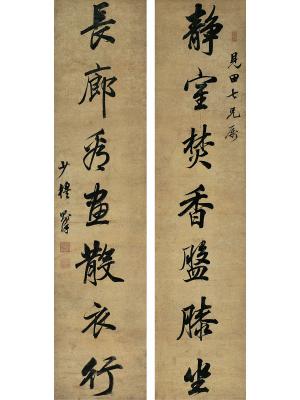 見田七兄屬
静室焚香盤膝坐
長廊看畫散衣行
少穆則徐